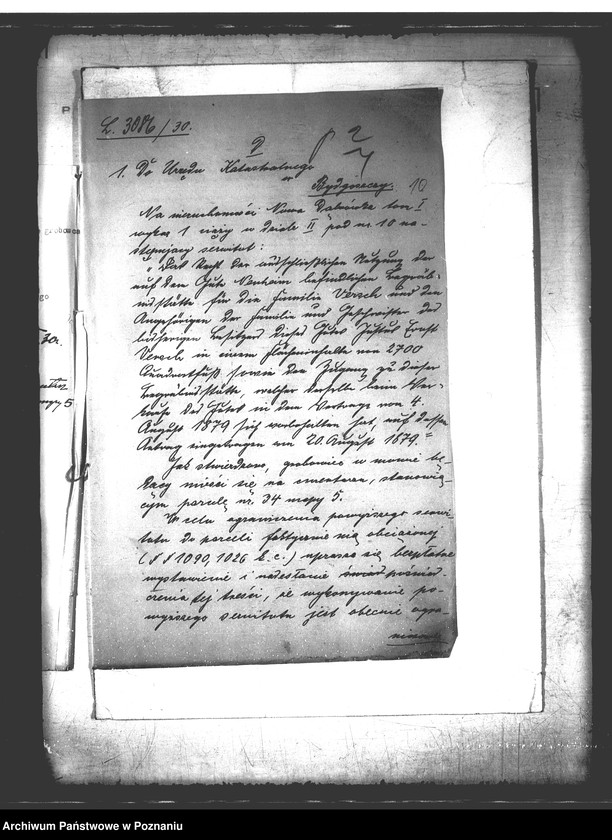 L. 3086/30.
D
2
1. Do Urzędu Katastralnego
w
Bydgoszczy. 10
Na nieruchomości Nowa Dąbrówka tom I
wykaz 1 ciąży w dziale II pod nr. 10 na-
stępujący serwitut:
"Das Recht der ausschließlichen Nutzung der
auf dem Gute Neuheim befindlichen Begräb-
nisstätte für die Familie Versch und den
Angehörigen der Familie und Geschwister des
bisherigen Besitzers dieses Gutes Justus Ernst
Versch in einem Flächeninhalte von 2700
Quadratfuß sowie den Zugang zu dieser
Begräbnisstätte, welcher derselbe beim Ver-
kaufe des Gutes in dem Vertrage vom 4.
August 1879 sich vorbehalten hat, auf dessen
Antrag eingetragen am 20. August 1879."
Jak stwierdzono, grobowiec w mowie bę-
dący mieści się na cmentarzu, stanowią-
cym parcelę nr. 34 mapy 5.
W celu ograniczenia powyższego serwi-
tutu do parceli faktycznie nią obciążonej
(§§ 1090, 1026 k.c.) uprasza się bezpłatne
wystawienie i nadesłanie świadpoświad-
czenia tej treści, że wykonywanie po-
wyższego serwitutu jest obecnie ogra-
niczone
30.
mapy 5
Archiwum Państwowe w Poznaniu